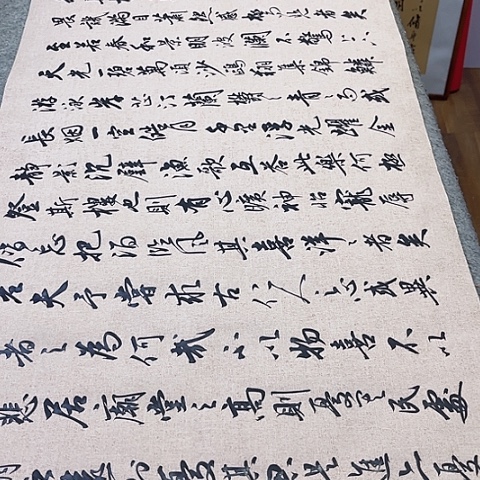 畏譏滿目蕭然感極而悲者矣
至若春和景明波瀾不驚上下
天光一碧萬頃沙鷗翔集錦鱗
游泳岸芷汀蘭鬱〻青〻而或
長烟一空皓月千里浮光躍金
靜影沉璧漁歌互答此樂何極
登斯樓也則有心曠神怡寵辱
偕忘把酒臨風其喜洋〻者矣
夫予嘗求古仁人之心或異
者之為何哉不以物喜不以
悲居廟堂之高則憂其民處